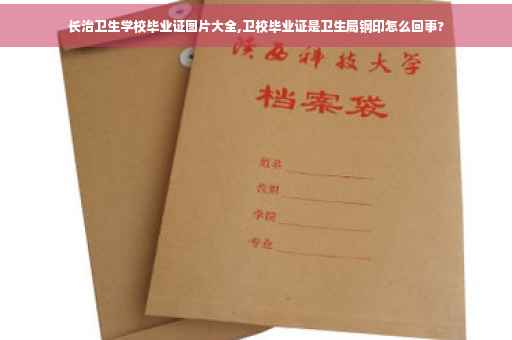 长治卫生学校毕业证图片大全,卫校毕业证是卫生局钢印怎么回事?
陕西科技大学
档案袋
姓名
学院
专业